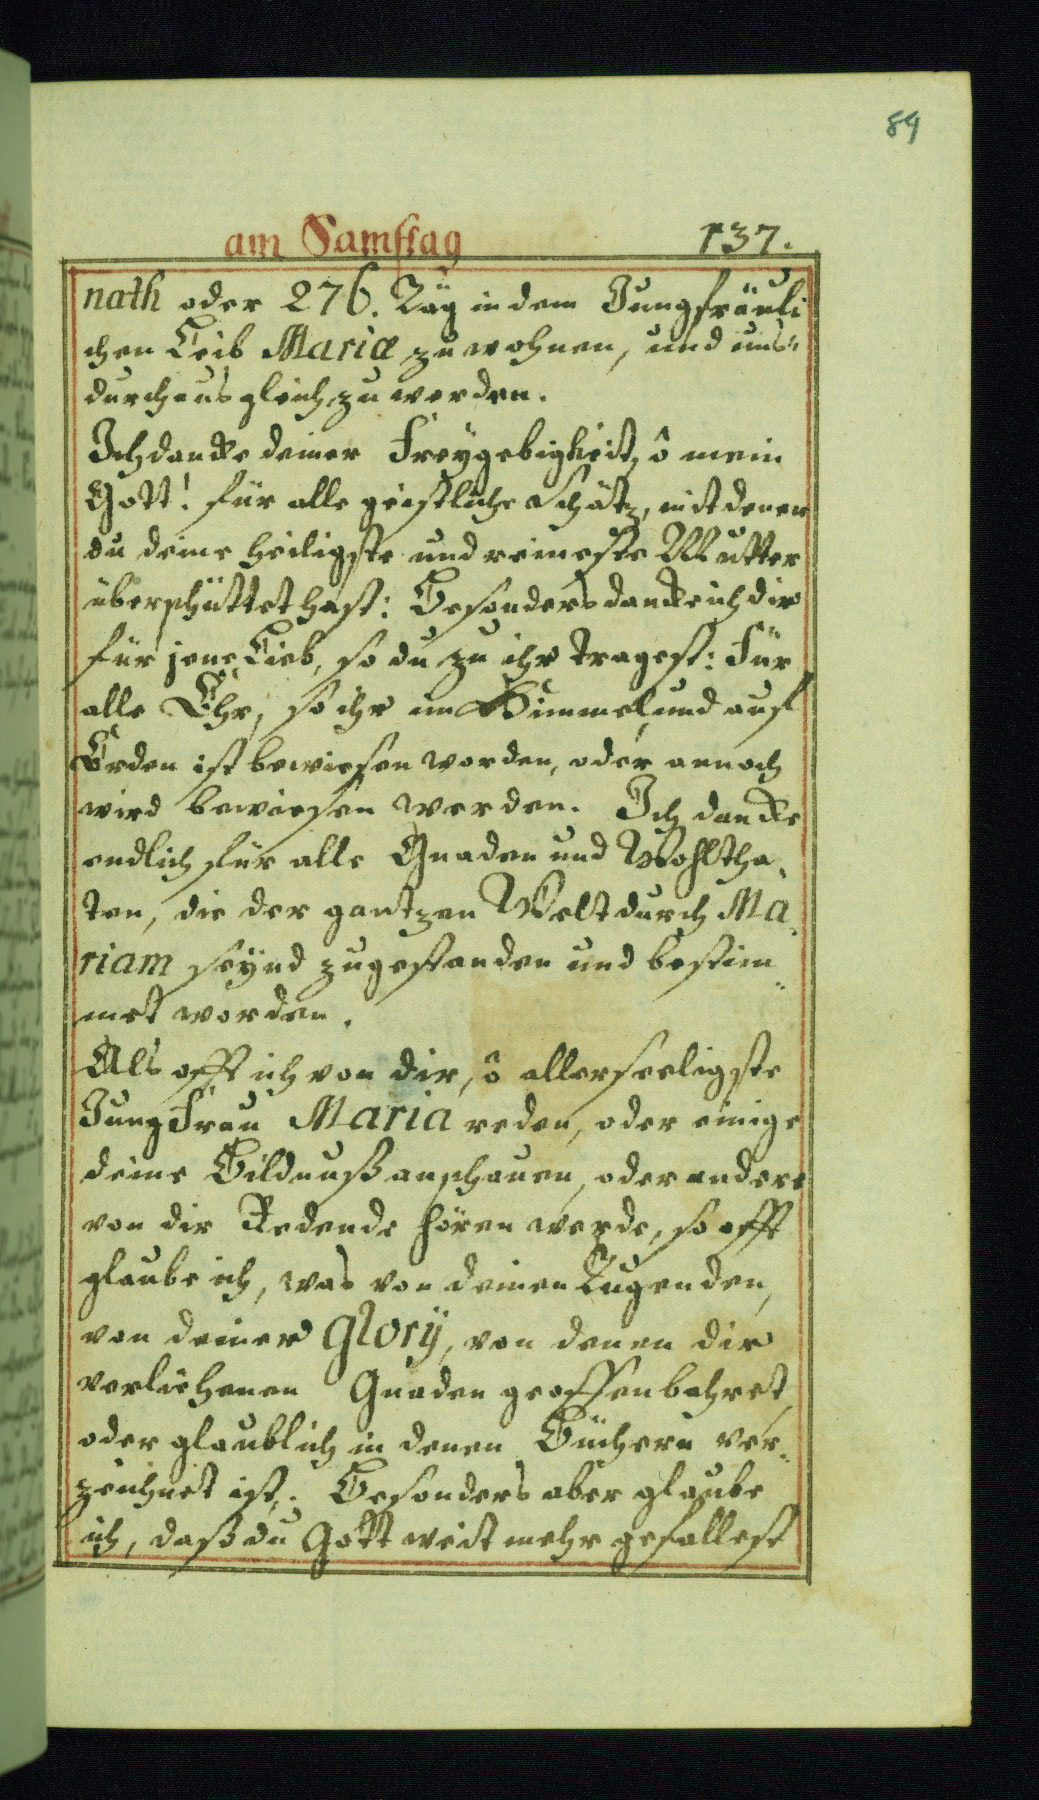 89
am Samstag 137.
nath oder 276. Täg in dem Jungfräuli
chen Leib Mariæ zu wohnen, und uns
durchaus gleich zu werden.
Ich dancke deiner Freygebigkeit, ô mein
Gott! für alle geistliche Schätz, mit denen
du deine heiligste und reineste Mutter
überschüttet hast: Besonders dancke ich dir
für jene Lieb, so du zu ihr tragest: Für
alle Ehr, so ihr im Himmel, und auf
Erden ist bewiesen worden, oder annoch
wird bewiesen werden. Ich dancke
endlich für alle Gnaden und Wohltha,
ten, die der gantzen Welt durch Ma,
riam seynd zugestanden und bestim¨
met worden.
Als offt ich von dir, ô allerseeligste
Jungfrau Maria reden, oder einige
deine Bildnuß anschauen, oder andere
von dir Redende hören werde, so offt
glaube ich, was von deinen Tugenden,
von deiner Glorÿ, von denen dir
verliehenen Gnaden geoffenbahret,
oder glaublich in denen Büchern ver¨
zeichnet ist: Besonders aber glaube
ich, daß du Gott weit mehr gefallest